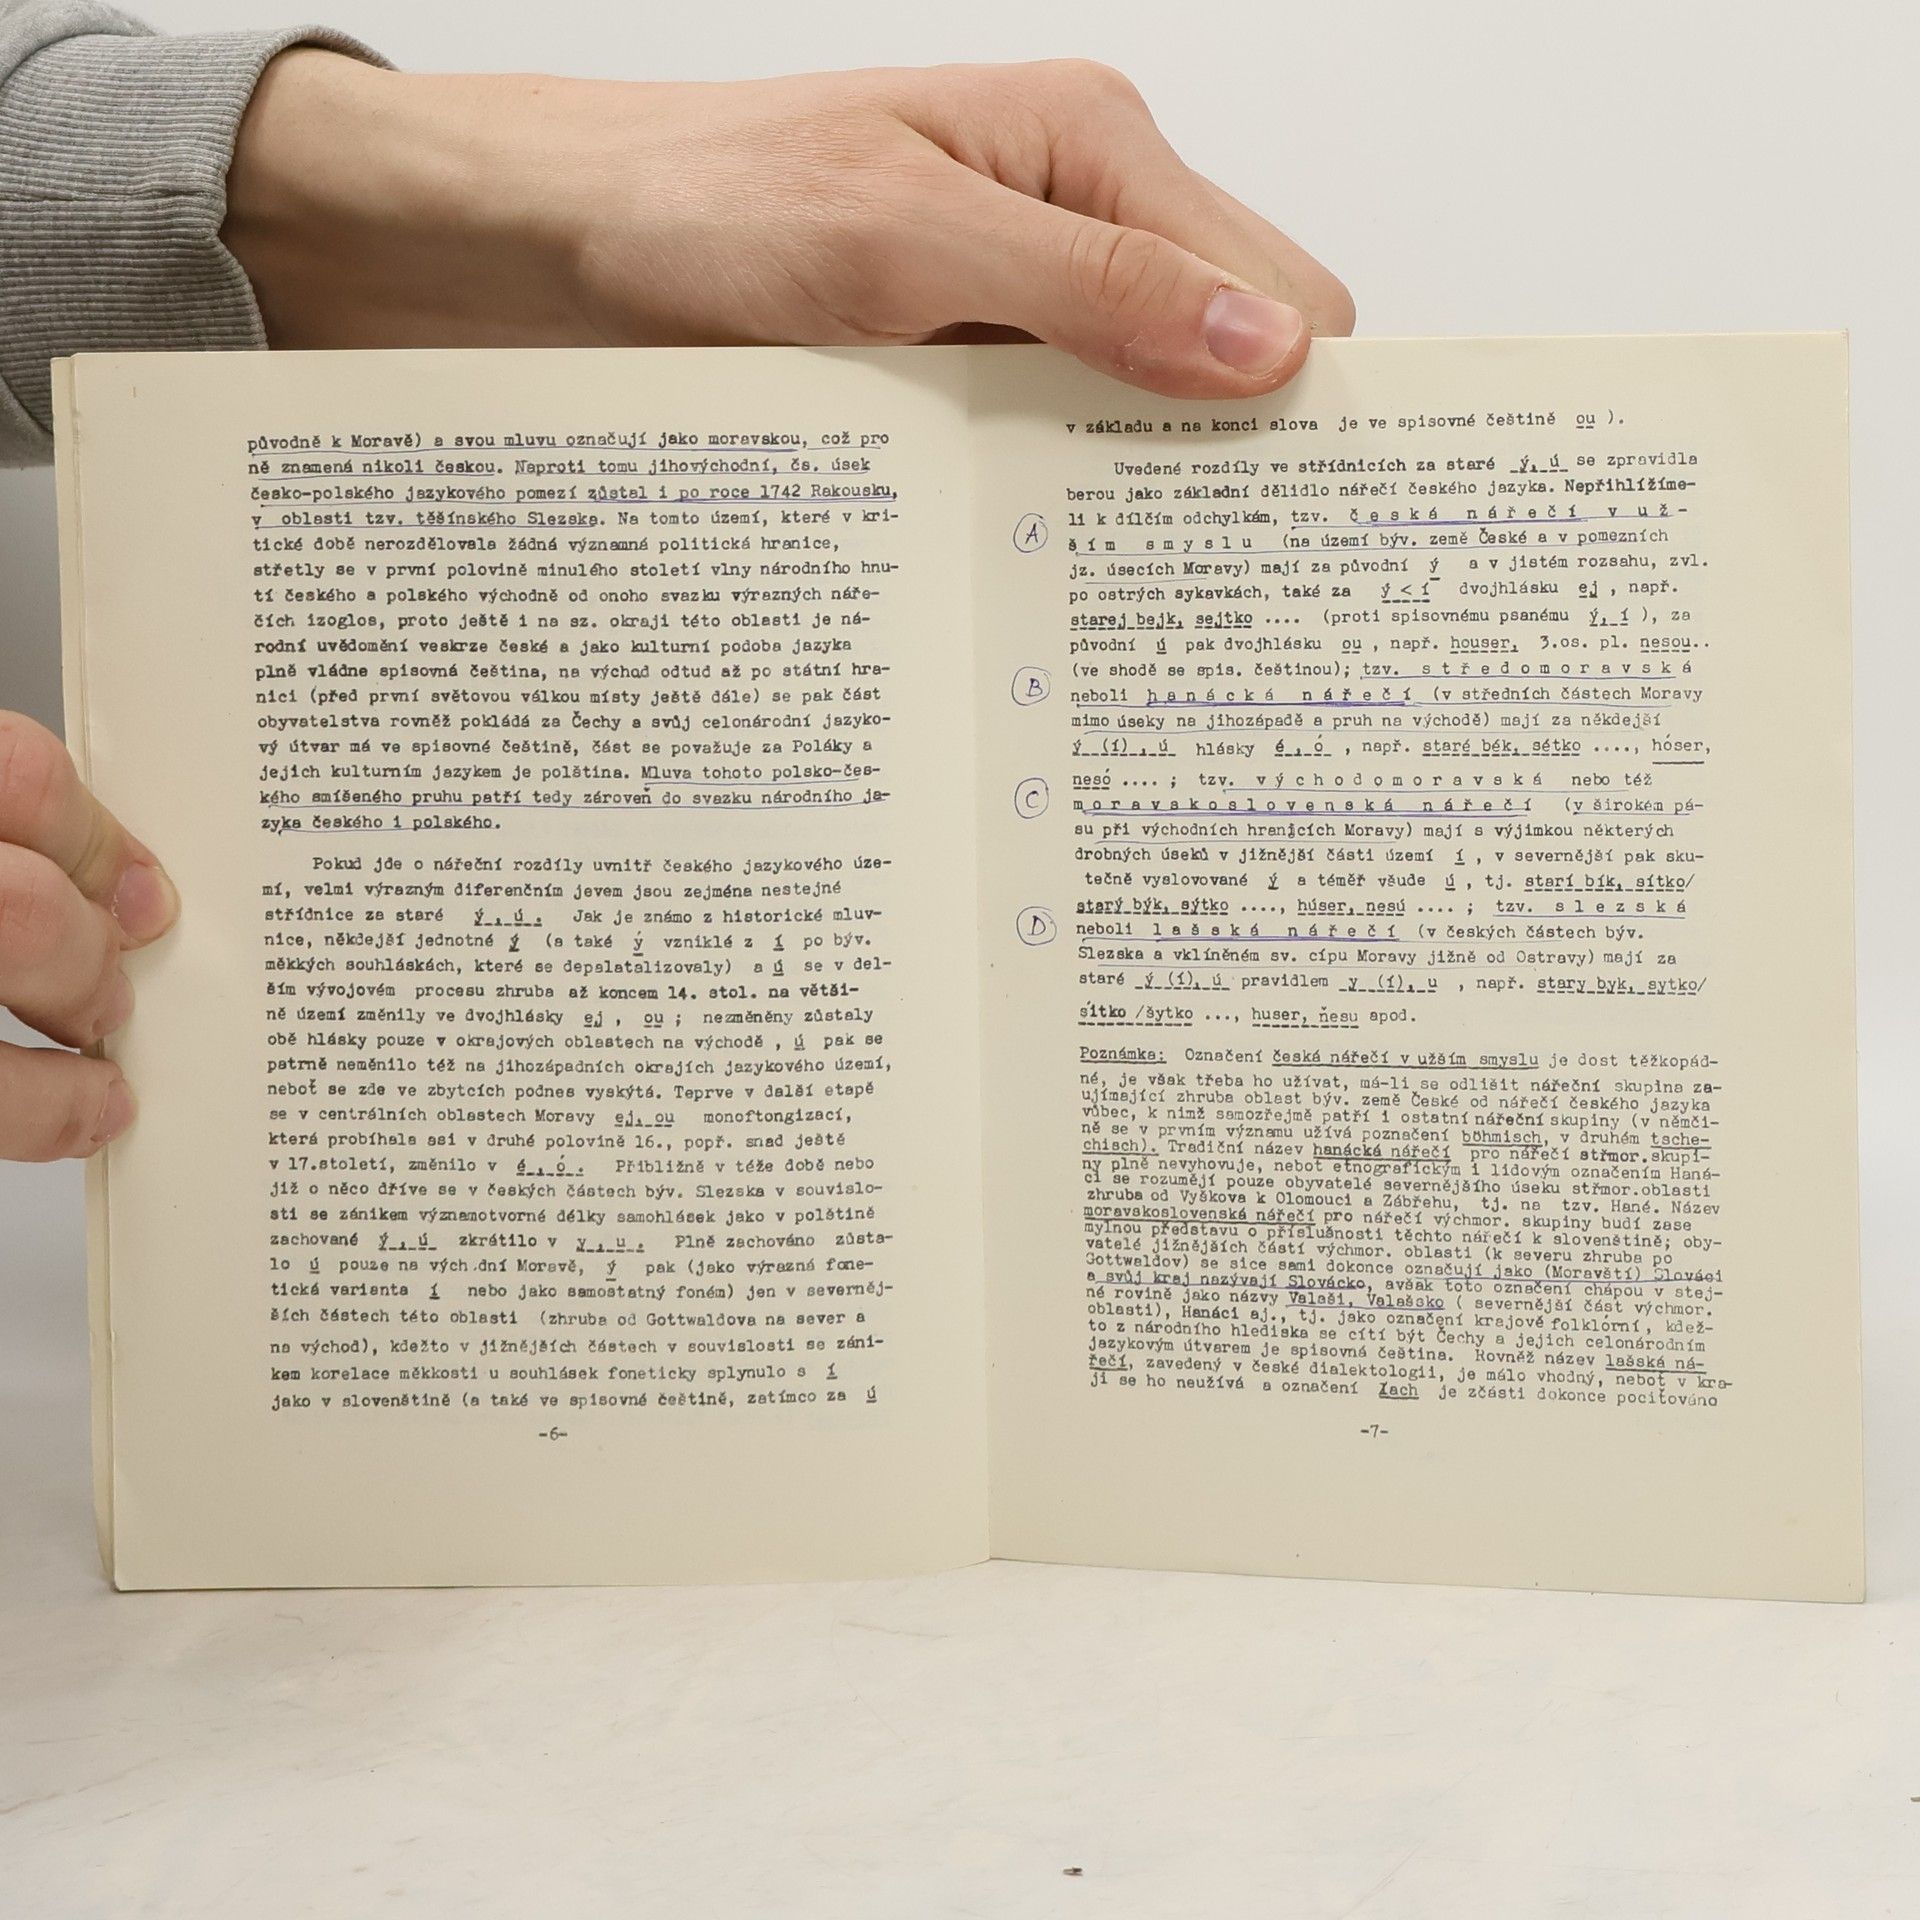 původně k Moravě) a svou mluvu označují jako moravskou, což pro
ně znamená nikoli českou. Naproti tomu jihovýchodní, čs. úsek
česko-polského jazykového pomezí zůstal i po roce 1742 Rakousku,
v oblasti tzv. těšínského Slezska. Na tomto území, které v kri-
tické době nerozdělovala žádná významná politická hranice,
střetly se v první polovině minulého století vlny národního hnu-
tí českého a polského východně od onoho svazku výrazných náře-
čích izoglos, proto ještě i na sz. okraji této oblasti je ná-
rodní uvědomění veskrze české a jako kulturní podoba jazyka
plně vládne spisovná čeština, na východ odtud až po státní hra-
nici (před první světovou válkou místy ještě dále) se pak část
obyvatelstva rovněž pokládá za Čechy a svůj celonárodní jazyko-
vý útvar má ve spisovné češtině, část se považuje za Poláky a
jejich kulturním jazykem je polština. Mluva tohoto polsko-čes-
kého smíšeného pruhu patří tedy zároveň do svazku národního ja-
zyka českého i polského.
Pokud jde o nářeční rozdíly uvnitř českého jazykového úze-
mí, velmi výrazným diferenčním jevem jsou zejména nestejné
střídnice za staré ý, ú. Jak je známo z historické mluv-
nice, někdejší jednotné ý (a také ý vzniklé z í po býv.
měkkých souhláskách, které se depalatalizovaly) a ú se v del-
ším vývojovém procesu zhruba až koncem 14. stol. na větši-
ně území změnily ve dvojhlásky ej , ou ; nezměněny zůstaly
obě hlásky pouze v okrajových oblastech na východě , ú pak se
patrně neměnilo též na jihozápadních okrajích jazykového území,
neboť se zde ve zbytcích podnes vyskýtá. Teprve v další etapě
se v centrálních oblastech Moravy ej, ou monoftongizací,
která probíhala asi v druhé polovině 16., popř. snad ještě
v 17.století, změnilo v é, ó. Přibližně v téže době nebo
již o něco dříve se v českých částech býv. Slezska v souvislo-
sti se zánikem významotvorné délky samohlásek jako v polštině
zachované ý, ú zkrátilo v y, u. Plně zachováno zůsta-
lo ú pouze na východní Moravě, ý pak (jako výrazná fone-
tická varianta í nebo jako samostatný foném) jen v severněj-
ších částech této oblasti (zhruba od Gottwaldova na sever a
na východ), kdežto v jižnějších částech v souvislosti se záni-
kem korelace měkkosti u souhlásek foneticky splynulo s í
jako v slovenštině (a také ve spisovné češtině, zatímco za ú
-6-
v základu a na konci slova je ve spisovné češtině ou ).
Uvedené rozdíly ve střídnicích za staré ý, ú se zpravidla
berou jako základní dělidlo nářečí českého jazyka. Nepřihlížíme-
li k dílčím odchylkám, tzv. česká nářečí v už-
A
ším smyslu (na území býv. země České a v pomezních
jz. úsecích Moravy) mají za původní ý a v jistém rozsahu, zvl.
po ostrých sykavkách, také za ý < í dvojhlásku ej , např.
starej bejk, sejtko .... (proti spisovnému psanému ý, í ), za
původní ú pak dvojhlásku ou , např. houser, 3.os. pl. nesou..
(ve shodě se spis. češtinou); tzv. středomoravská
B
neboli hanácká nářečí (v středních částech Moravy
mimo úseky na jihozápadě a pruh na východě) mají za někdejší
ý (í) , ú hlásky é, ó , např. staré bék, sétko ...., hóser,
nesó .... ; tzv. východomoravská nebo též
C
moravskoslovenská nářečí (v širokém pá-
su při východních hranicích Moravy) mají s výjimkou některých
drobných úseků v jižnější části území í , v severnější pak sku-
tečně vyslovované ý a téměř všude ú , tj. starí bík, sítko/
starý býk, sýtko ...., húser, nesú .... ; tzv. slezská
D
neboli lašská nářečí (v českých částech býv.
Slezska a vklíněném sv. cípu Moravy jižně od Ostravy) mají za
staré ý (í), ú pravidlem y (i), u , např. stary byk, sytko/
sitko /šytko ..., huser, ňesu apod.
Poznámka: Označení česká nářečí v užším smyslu je dost těžkopád-
né, je však třeba ho užívat, má-li se odlišit nářeční skupina za-
ujímající zhruba oblast býv. země České od nářečí českého jazyka
vůbec, k nimž samozřejmě patří i ostatní nářeční skupiny (v němči-
ně se v prvním významu užívá poznačení böhmisch, v druhém tsche-
chisch). Tradiční název hanácká nářečí pro nářečí střmor.skupi-
ny plně nevyhovuje, neboť etnografickým i lidovým označením Haná-
ci se rozumějí pouze obyvatelé severnějšího úseku střmor.oblasti
zhruba od Vyškova k Olomouci a Zábřehu, tj. na tzv. Hané. Název
moravskoslovenská nářečí pro nářečí výchmor. skupiny budí zase
mylnou představu o příslušnosti těchto nářečí k slovenštině; oby-
vatelé jižnějších částí výchmor. oblasti (k severu zhruba po
Gottwaldov) se sice sami dokonce označují jako (Moravští) Slováci
a svůj kraj nazývají Slovácko, avšak toto označení chápou v stej-
né rovině jako názvy Valaši, Valašsko ( severnější část výchmor.
oblasti), Hanáci aj., tj. jako označení krajově folklórní, kdež-
to z národního hlediska se cítí být Čechy a jejich celonárodním
jazykovým útvarem je spisovná čeština. Rovněž název lašská ná-
řečí, zavedený v české dialektologii, je málo vhodný, neboť v kra-
ji se ho neužívá a označení Lach je zčásti dokonce pociťováno
-7-